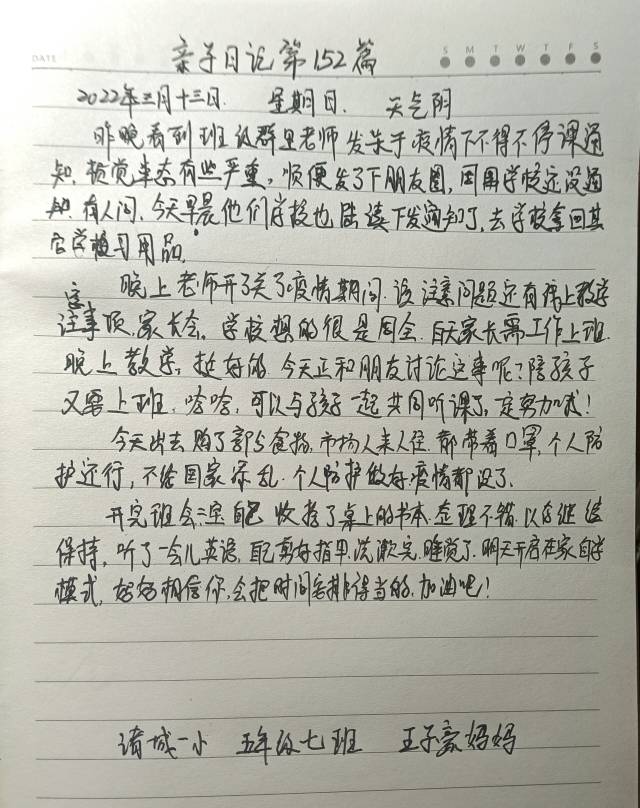 亲子日记第152篇
DATE
S M T W T F S
2022年三月十三日. 星期日. 天气阴
昨晚看到班级群里老师发关于疫情下不得不停课通
知, 感觉事态有些严重, 顺便发了下朋友圈, 因用学校还没通
知, 有人问, 今天早晨他们学校也陆续下发通知了, 去学校拿回其
它学习用品.
晚上老师开了关于疫情期间, 该注意问题还有线上教学
注意事项, 家长会, 学校想的很是周全, 白天家长需工作上班
晚上教学, 挺好的, 今天正和朋友讨论这事呢? 陪孩子
又要上班, 哈哈, 可以与孩子一起共同听课了, 定努力哦!
今天出去购了部分食物, 市场人来人往, 都带着口罩, 个人防
护还行, 不给国家添乱. 个人防护做好疫情都没了.
开完班会 自己收拾了桌上的书本, 整理不错, 以后继续
保持, 听了一会儿英语, 自己剪好指甲, 洗漱完, 睡觉了. 明天开启在家自学
模式, 妈妈相信你, 会把时间安排得当的, 加油吧!
诸城一小 五年级七班 王子豪妈妈